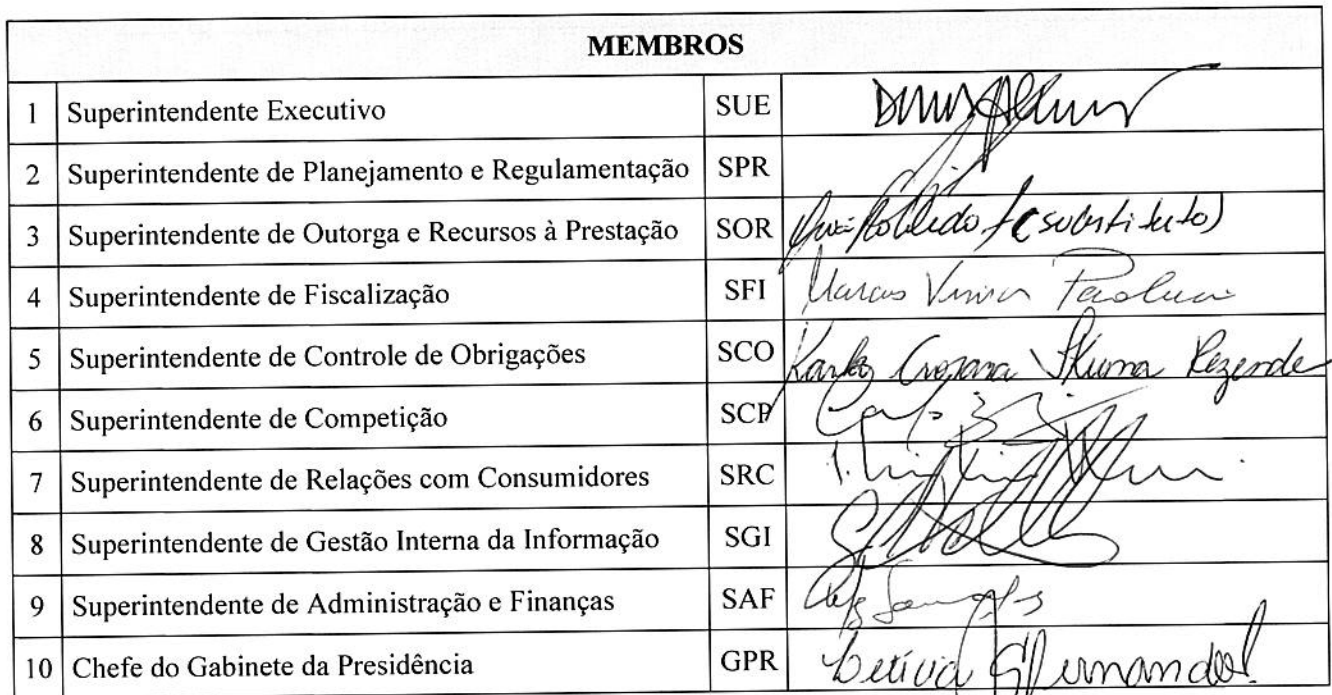 MEMBROS
1 Superintendente Executivo SUE
2 Superintendente de Planejamento e Regulamentação SPR
3 Superintendente de Outorga e Recursos à Prestação SOR (substituto)
4 Superintendente de Fiscalização SFI Marcus Vinicius Paolucci
5 Superintendente de Controle de Obrigações SCO Karla Crosara Ikuma Rezende
6 Superintendente de Competição SCP
7 Superintendente de Relações com Consumidores SRC
8 Superintendente de Gestão Interna da Informação SGI
9 Superintendente de Administração e Finanças SAF
10 Chefe do Gabinete da Presidência GPR Letícia Fernandes